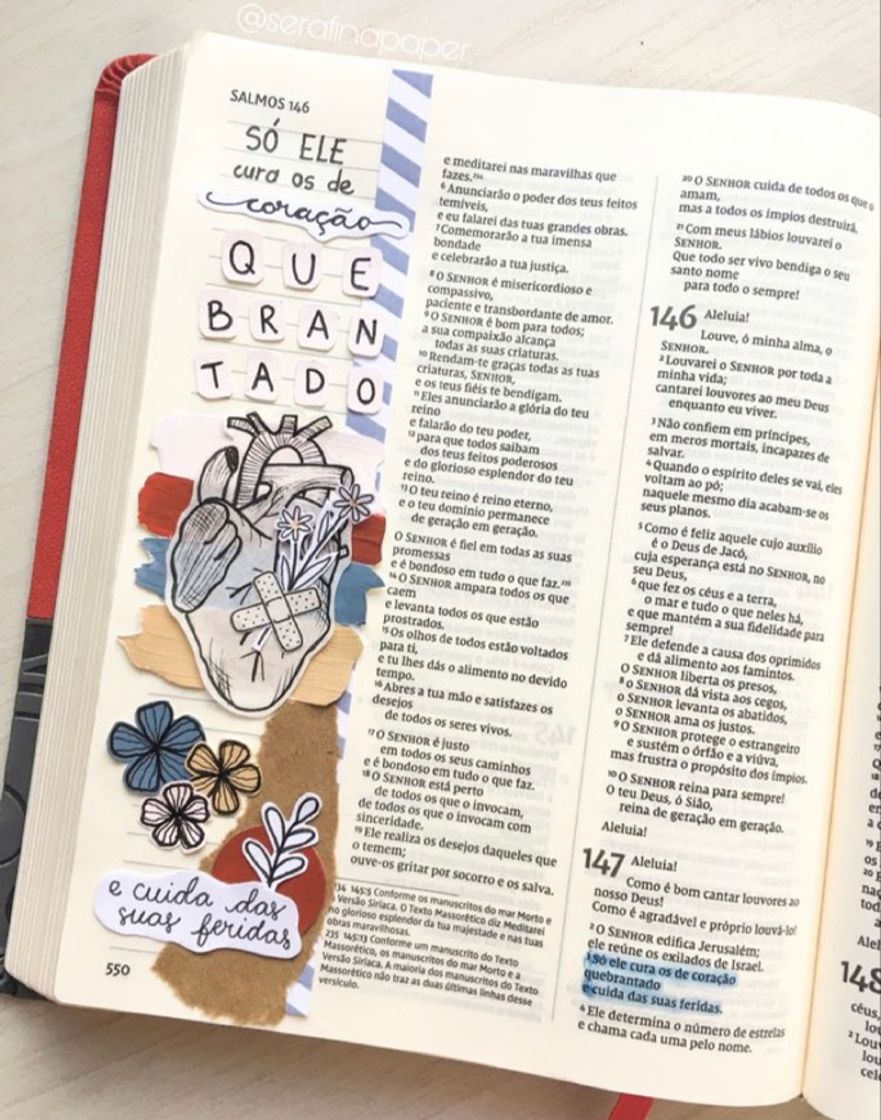 @serafinapaper
SALMOS 146
SÓ ELE
cura os de
coração
QUE
BRAN
TADO
e cuida das
suas feridas
550
e meditarei nas maravilhas que
fazes.²³⁴
⁶Anunciarão o poder dos teus feitos
temíveis,
e eu falarei das tuas grandes obras.
⁷Comemorarão a tua imensa
bondade
e celebrarão a tua justiça.
⁸O SENHOR é misericordioso e
compassivo,
paciente e transbordante de amor.
⁹O SENHOR é bom para todos;
a sua compaixão alcança
todas as suas criaturas.
¹⁰Rendam-te graças todas as tuas
criaturas, SENHOR,
e os teus fiéis te bendigam.
¹¹Eles anunciarão a glória do teu
reino
e falarão do teu poder,
¹²para que todos saibam
dos teus feitos poderosos
e do glorioso esplendor do teu
reino.
¹³O teu reino é reino eterno,
e o teu domínio permanece
de geração em geração.
O SENHOR é fiel em todas as suas
promessas
e é bondoso em tudo o que faz.²³⁵
¹⁴O SENHOR ampara todos os que
caem
e levanta todos os que estão
prostrados.
¹⁵Os olhos de todos estão voltados
para ti,
e tu lhes dás o alimento no devido
tempo.
¹⁶Abres a tua mão e satisfazes os
desejos
de todos os seres vivos.
¹⁷O SENHOR é justo
em todos os seus caminhos
e é bondoso em tudo o que faz.
¹⁸O SENHOR está perto
de todos os que o invocam,
de todos os que o invocam com
sinceridade.
¹⁹Ele realiza os desejos daqueles que
o temem;
ouve-os gritar por socorro e os salva.
234 145:5 Conforme os manuscritos do mar Morto e
a Versão Siríaca. O Texto Massorético diz Meditarei
no glorioso esplendor da tua majestade e nas tuas
obras maravilhosas.
235 145:13 Conforme um manuscrito do Texto
Massorético, os manuscritos do mar Morto e a
Versão Siríaca. A maioria dos manuscritos do Texto
Massorético não traz as duas últimas linhas desse
versículo.
²⁰O SENHOR cuida de todos os que o
amam,
mas a todos os ímpios destruirá.
²¹Com meus lábios louvarei o
SENHOR.
Que todo ser vivo bendiga o seu
santo nome
para todo o sempre!
146 Aleluia!
Louve, ó minha alma, o
SENHOR.
²Louvarei o SENHOR por toda a
minha vida;
cantarei louvores ao meu Deus
enquanto eu viver.
³Não confiem em príncipes,
em meros mortais, incapazes de
salvar.
⁴Quando o espírito deles se vai, eles
voltam ao pó;
naquele mesmo dia acabam-se os
seus planos.
⁵Como é feliz aquele cujo auxílio
é o Deus de Jacó,
cuja esperança está no SENHOR, no
seu Deus,
⁶que fez os céus e a terra,
o mar e tudo o que neles há,
e que mantém a sua fidelidade para
sempre!
⁷Ele defende a causa dos oprimidos
e dá alimento aos famintos.
O SENHOR liberta os presos,
⁸O SENHOR dá vista aos cegos,
o SENHOR levanta os abatidos,
o SENHOR ama os justos.
⁹O SENHOR protege o estrangeiro
e sustém o órfão e a viúva,
mas frustra o propósito dos ímpios.
¹⁰O SENHOR reina para sempre!
O teu Deus, ó Sião,
reina de geração em geração.
Aleluia!
147 Aleluia!
Como é bom cantar louvores ao
nosso Deus!
Como é agradável e próprio louvá-lo!
²O SENHOR edifica Jerusalém;
ele reúne os exilados de Israel.
³Só ele cura os de coração
quebrantado
e cuida das suas feridas.
⁴Ele determina o número de estrelas
e chama cada uma pelo nome.
148
céus,